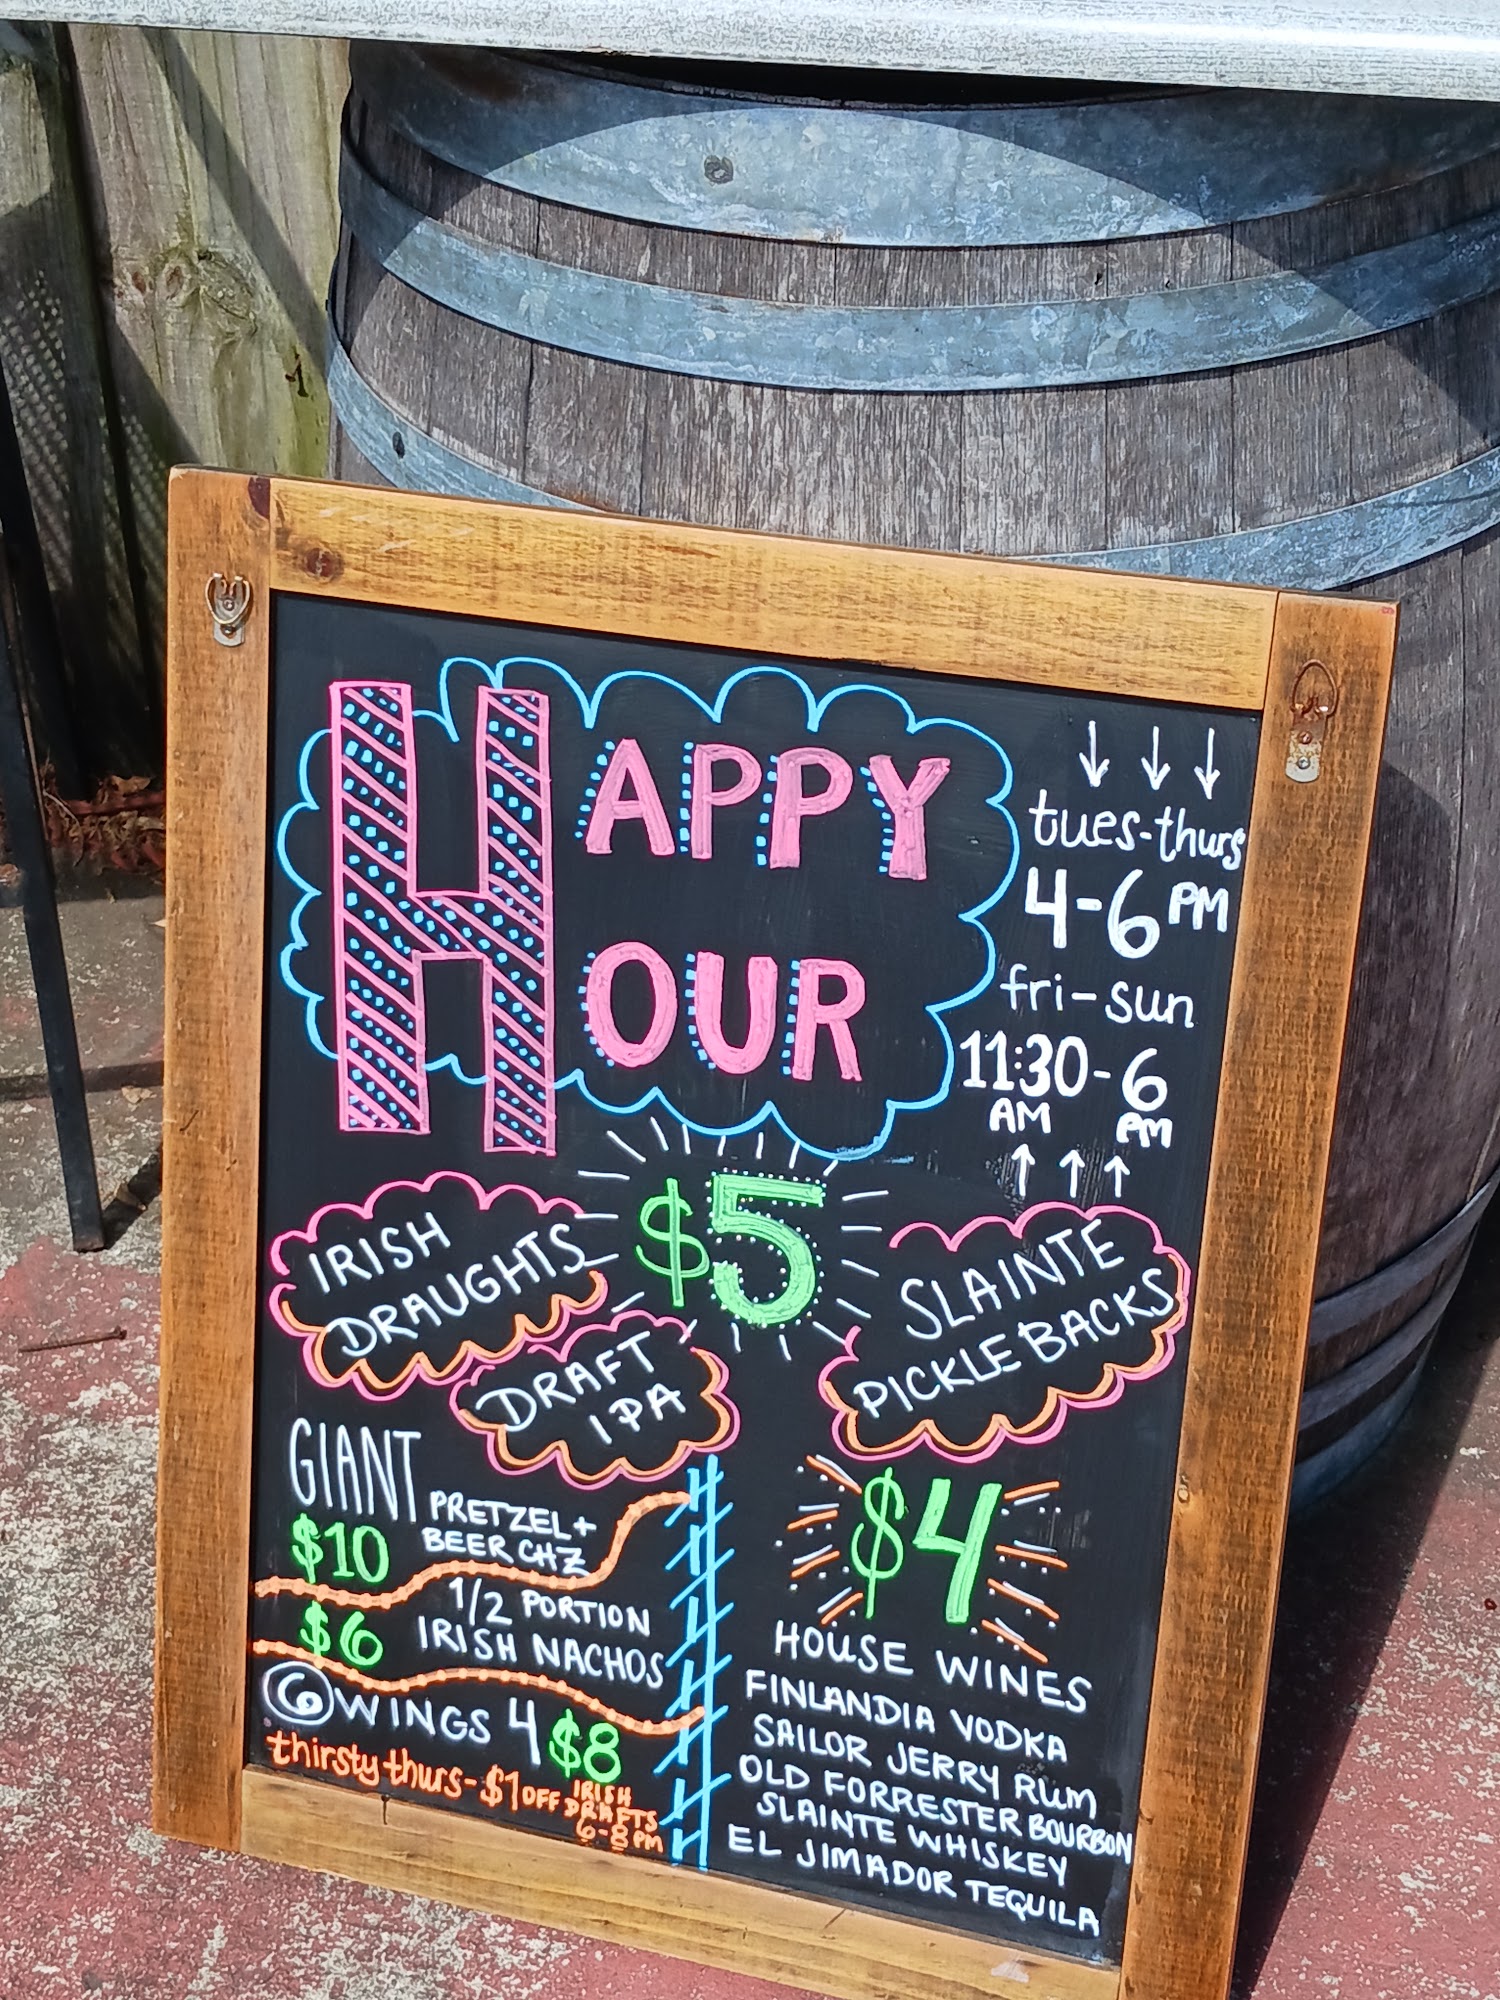 HAPPY
HOUR
tues-thurs
4-6 PM
fri-sun
11:30-6
AM PM
$5
IRISH
DRAUGHTS
DRAFT
IPA
SLAINTE
PICKLE BACKS
GIANT
$10
PRETZEL +
BEER CHZ
$6
1/2 PORTION
IRISH NACHOS
6 WINGS 4 $8
thirsty thurs- $1 OFF IRISH
DRAFTS
6-8 PM
$4
HOUSE WINES
FINLANDIA VODKA
SAILOR JERRY RUM
OLD FORRESTER BOURBON
SLAINTE WHISKEY
EL JIMADOR TEQUILA